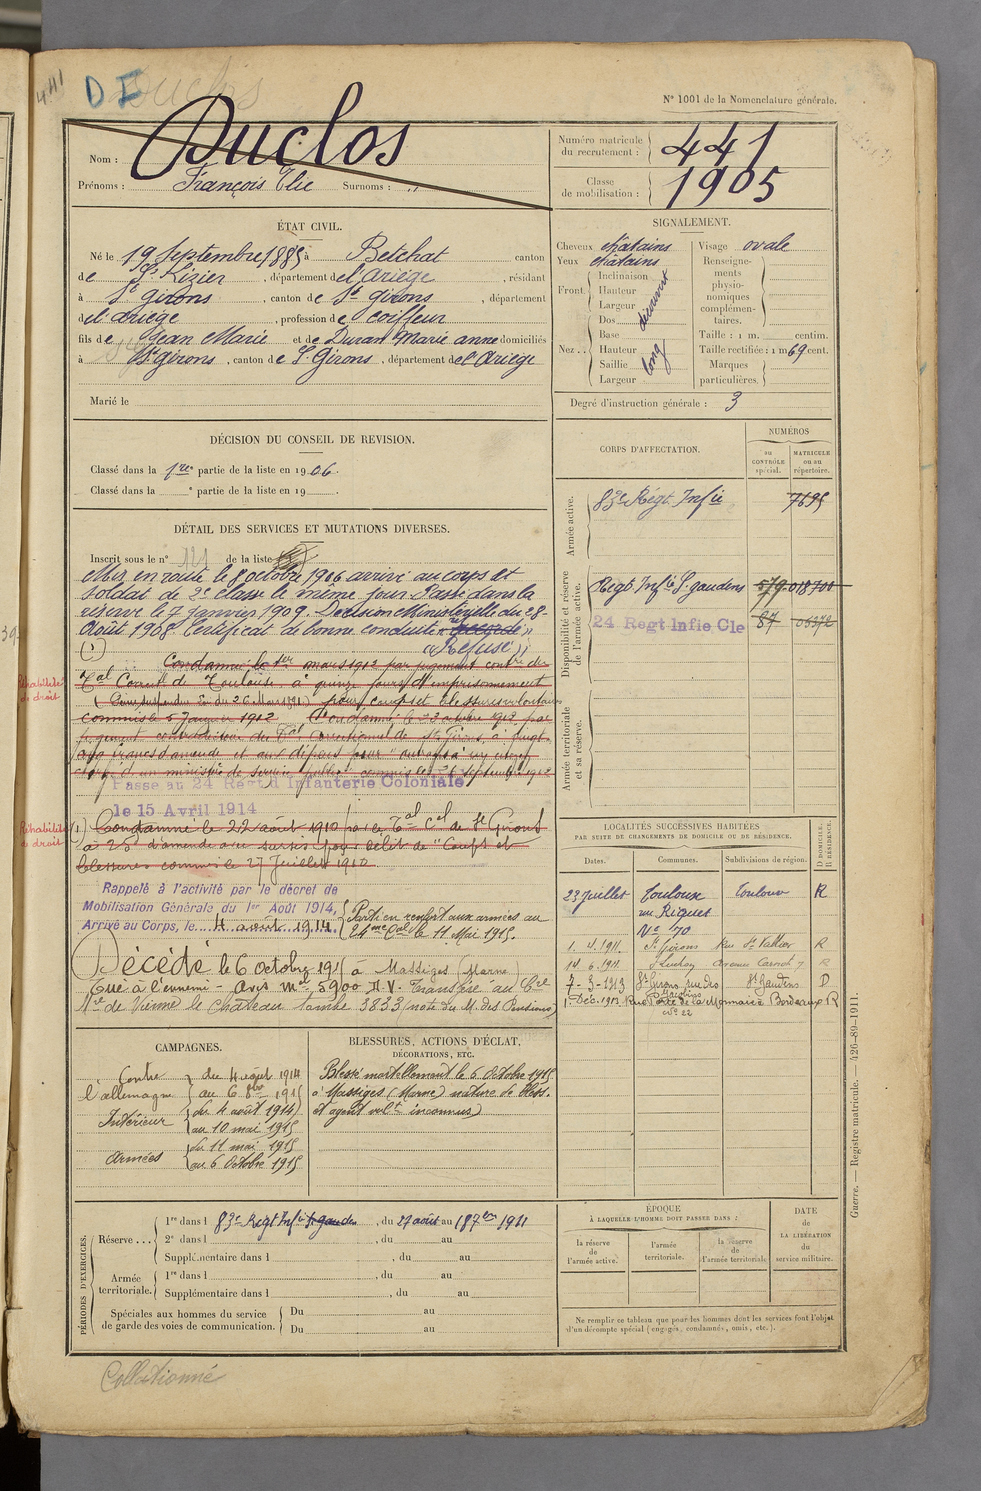 441
D F
Duclos
N° 1001 de la Nomenclature générale.
Nom : Duclos
Prénoms : François Elie Surnoms : "
Numéro matricule du recrutement : 441
Classe de mobilisation : 1905
ÉTAT CIVIL.
Né le 19 Septembre 1885 à Betchat canton
de St Lizier, département de l'Ariège, résidant
à St Girons, canton de St Girons, département
de l'Ariège, profession de Coiffeur
fils de Jean Marie et de Duran Marie Anne domiciliés
à St Girons, canton de St Girons, département de l'Ariège
Marié le
SIGNALEMENT.
Cheveux châtains
Yeux châtains
Front. Inclinaison
Hauteur
Largeur
découvert
Nez.. Dos
Base
Hauteur
Saillie
Largeur
long
Visage ovale
Renseignements physionomiques complémentaires.
Taille : 1 m. centim.
Taille rectifiée : 1 m 69 cent.
Marques particulières.
Degré d'instruction générale : 3
DÉCISION DU CONSEIL DE REVISION.
Classé dans la 1re partie de la liste en 1906.
Classé dans la e partie de la liste en 19
CORPS D'AFFECTATION.
NUMÉROS
au CONTRÔLE spécial.
MATRICULE ou au répertoire.
Armée active.
83e Régt Infie 7695
Disponibilité et réserve de l'armée active.
Régt Infie St Gaudens 579 018700
24 Regt Infie Cle 87 06372
Armée territoriale et sa réserve.
DÉTAIL DES SERVICES ET MUTATIONS DIVERSES.
Inscrit sous le n° 121 de la liste
Mis en route le 8 octobre 1906 arrivé au corps et
soldat de 2e classe le même jour. Passé dans la
réserve le 7 janvier 1909. Décision Ministérielle du 28
Août 1908. Certificat de bonne conduite "accordé"
"Refusé"
(1)
Condamné le 1er mars 1912 par jugement contre du
Tal Correct. de Toulouse à quinze jours d'emprisonnement
pour coups et blessures volontaires
commis le 5 Janvier 1912. Condamné le 23 octobre 1912 par
jugement contradictoire du Tal correctionnel de St Girons à vingt
cinq francs d'amende et aux dépens pour outrages à un citoyen
chargé d'un ministère de service public commis le 26 septembre 1912
Réhabilité de droit
Passe au 24 Regt d'Infanterie Coloniale
le 15 Avril 1914
Réhabilité de droit
(1) Condamné le 22 août 1910 par le Tal Cel de St Girons
à 25f d'amende avec sursis pour délit de "Coups et
blessures commis le 27 Juillet 1910
Rappelé à l'activité par le décret de
Mobilisation Générale du 1er Août 1914,
Arrivé au Corps, le 4 août 1914.
Parti en renfort aux armées au
24me Cal le 11 Mai 1915.
Décédé le 6 Octobre 1915 à Massiges (Marne)
Tué à l'ennemi - Avis Mel 5900 H.V. Transféré au Cre
Nle de Vienne le Château tombe 3833 (note du M. des Pensions)
LOCALITÉS SUCCESSIVES HABITÉES
PAR SUITE DE CHANGEMENTS DE DOMICILE OU DE RÉSIDENCE.
Dates. Communes. Subdivisions de région. D. DOMICILE. R. RÉSIDENCE.
23 Juillet Toulouse Toulouse R
rue Riquet
N° 70
1. 4. 1911. St Girons Rue St Vallier R
14. 6. 1911 Luchon Avenue Carnot 7 R
7 - 3 - 1913 St Girons, rue des Jacobins St Gaudens D
1 Déc. 1913 Rue Porte de la Monnaie à Bordeaux R
N° 22
CAMPAGNES.
Contre l'allemagne du 4 août 1914
au 6 8bre 1915
Intérieur du 4 août 1914
au 10 mai 1915
Armées du 11 mai 1915
au 6 Octobre 1915
BLESSURES, ACTIONS D'ÉCLAT,
DÉCORATIONS, ETC.
Blessé mortellement le 6 Octobre 1915
à Massiges (Marne) nature de bless.
et agent vult inconnus
PÉRIODES D'EXERCICES.
Réserve... 1re dans l 83e Régt Infie St Gaudens, du 27 août au 18 7bre 1911
2e dans l , du au
Supplémentaire dans l , du au
Armée territoriale. 1re dans l , du au
Supplémentaire dans l , du au
Spéciales aux hommes du service de garde des voies de communication. Du au
Du au
ÉPOQUE
À LAQUELLE L'HOMME DOIT PASSER DANS :
la réserve de l'armée active.
l'armée territoriale.
la réserve de l'armée territoriale
DATE de LA LIBÉRATION du service militaire.
Ne remplir ce tableau que pour les hommes dont les services font l'objet
d'un décompte spécial (engagés, condamnés, omis, etc.).
Guerre. — Registre matricule. — 426-89-1911.
Collationné